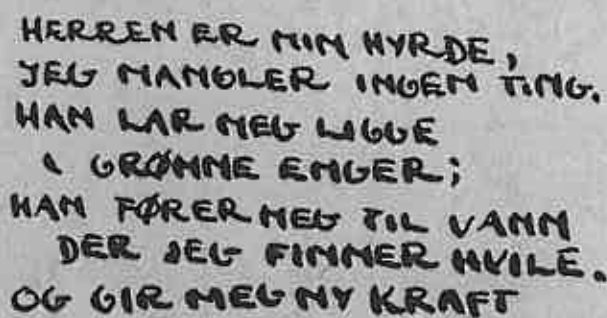 HERREN ER MIN HYRDE,
JEG MANGLER INGEN TING.
HAN LAR MEG LIGGE
I GRØNNE ENGER;
HAN FØRER MEG TIL VANN
DER JEG FINNER HVILE.
OG GIR MEG NY KRAFT